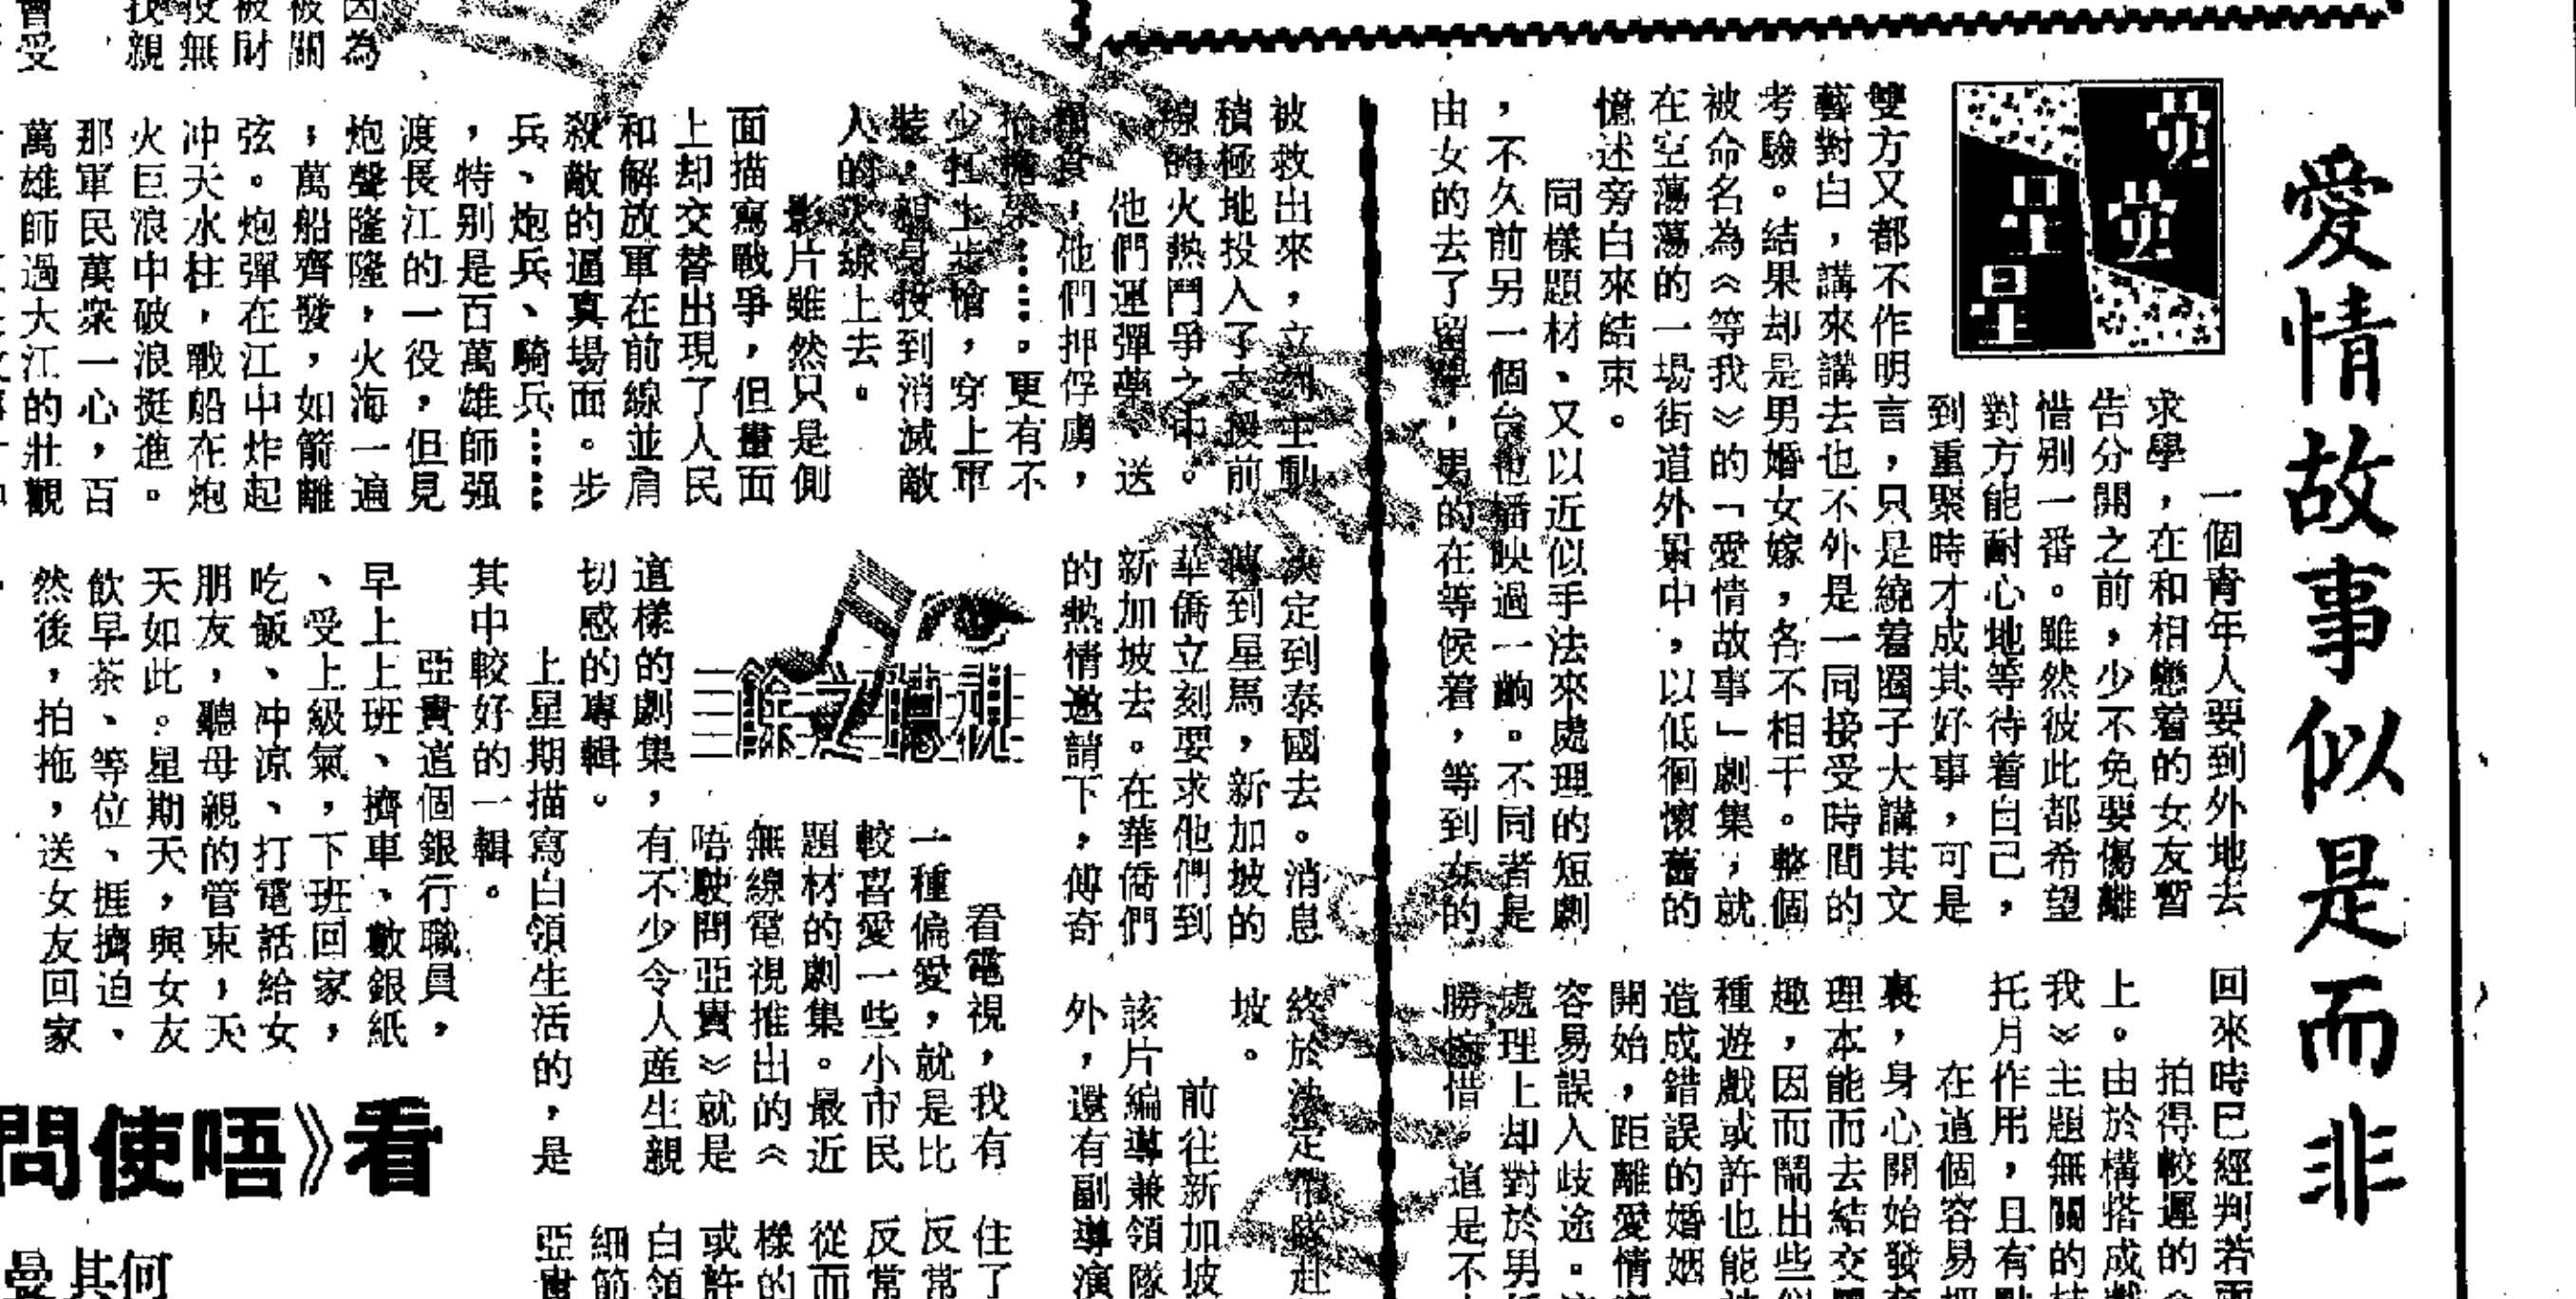 愛情故事似是而非
熒熒星星
一個青年人要到外地去
求學，在和相戀着的女友暫
告分開之前，少不免要傷離
惜别一番。雖然彼此都希望
對方能耐心地等待着自己，
到重聚時才成其好事，可是
雙方又都不作明言，只是繞着圈子大講其文
藝對白，講來講去也不外是一同接受時間的
考驗。結果却是男婚女嫁，各不相干。整個
被命名為《等我》的「愛情故事」劇集，就
在空蕩蕩的一場街道外景中，以低徊懷舊的
憶述旁白來結束。
同樣題材、又以近似手法來處理的短劇
，不久前另一個台也播映過一齣。不同者是
由女的去了留學，男的在等候着，等到女的
回來時已經判若兩
拍得較遲的《
上。由於構搭成戲
我》主題無關的枝
托月作用，且有點
在這個容易把
裏，身心開始發育
理本能而去結交異
趣，因而鬧出些似
種遊戲或許也能被
造成錯誤的婚姻
開始，距離愛情
容易誤入歧途。
處理上却對於男
勝惋惜，這是不
被救出來，立刻主動
積極地投入了支援前
線的火熱鬥爭之中。
他們運彈藥、送
糧食；他們押俘虜，
抬擔架……。更有不
少扛上步槍，穿上軍
裝，親身投到消滅敵
人的火線上去。
影片雖然只是側
面描寫戰爭，但畫面
上却交替出現了人民
和解放軍在前線並肩
殺敵的逼真場面。步
兵、炮兵、騎兵……
，特别是百萬雄師强
渡長江的一役，但見
炮聲隆隆，火海一遍
，萬船齊發，如箭離
弦。炮彈在江中炸起
冲天水柱，戰船在炮
火巨浪中破浪挺進。
那軍民萬衆一心，百
萬雄師過大江的壯觀
因為
被關
被財
投無
投親
，
會受
決定到泰國去。消息
傳到星馬，新加坡的
華僑立刻要求他們到
新加坡去。在華僑們
的熱情邀請下，傅奇
終於決定帶隊赴
坡。
前往新加坡
該片編導兼領隊
外，還有副導演
視聽之餘
看電視，我有
一種偏愛，就是比
較喜愛一些小市民
題材的劇集。最近
無線電視推出的《
唔駛問亞貴》就是
這樣的劇集，有不少令人產生親
切感的專輯。
上星期描寫白領生活的，是
其中較好的一輯。
亞貴這個銀行職員，
早上上班、擠車、數銀紙
、受上級氣，下班回家，
吃飯、冲涼、打電話給女
朋友，聽母親的管束，天
天如此。星期天，與女友
飲早茶、等位、捱擠迫、
然後，拍拖，送女友回家
看《唔使問
何其曼
住了
反常
反常
從而
樣的
或許
白領
細節
亞貴